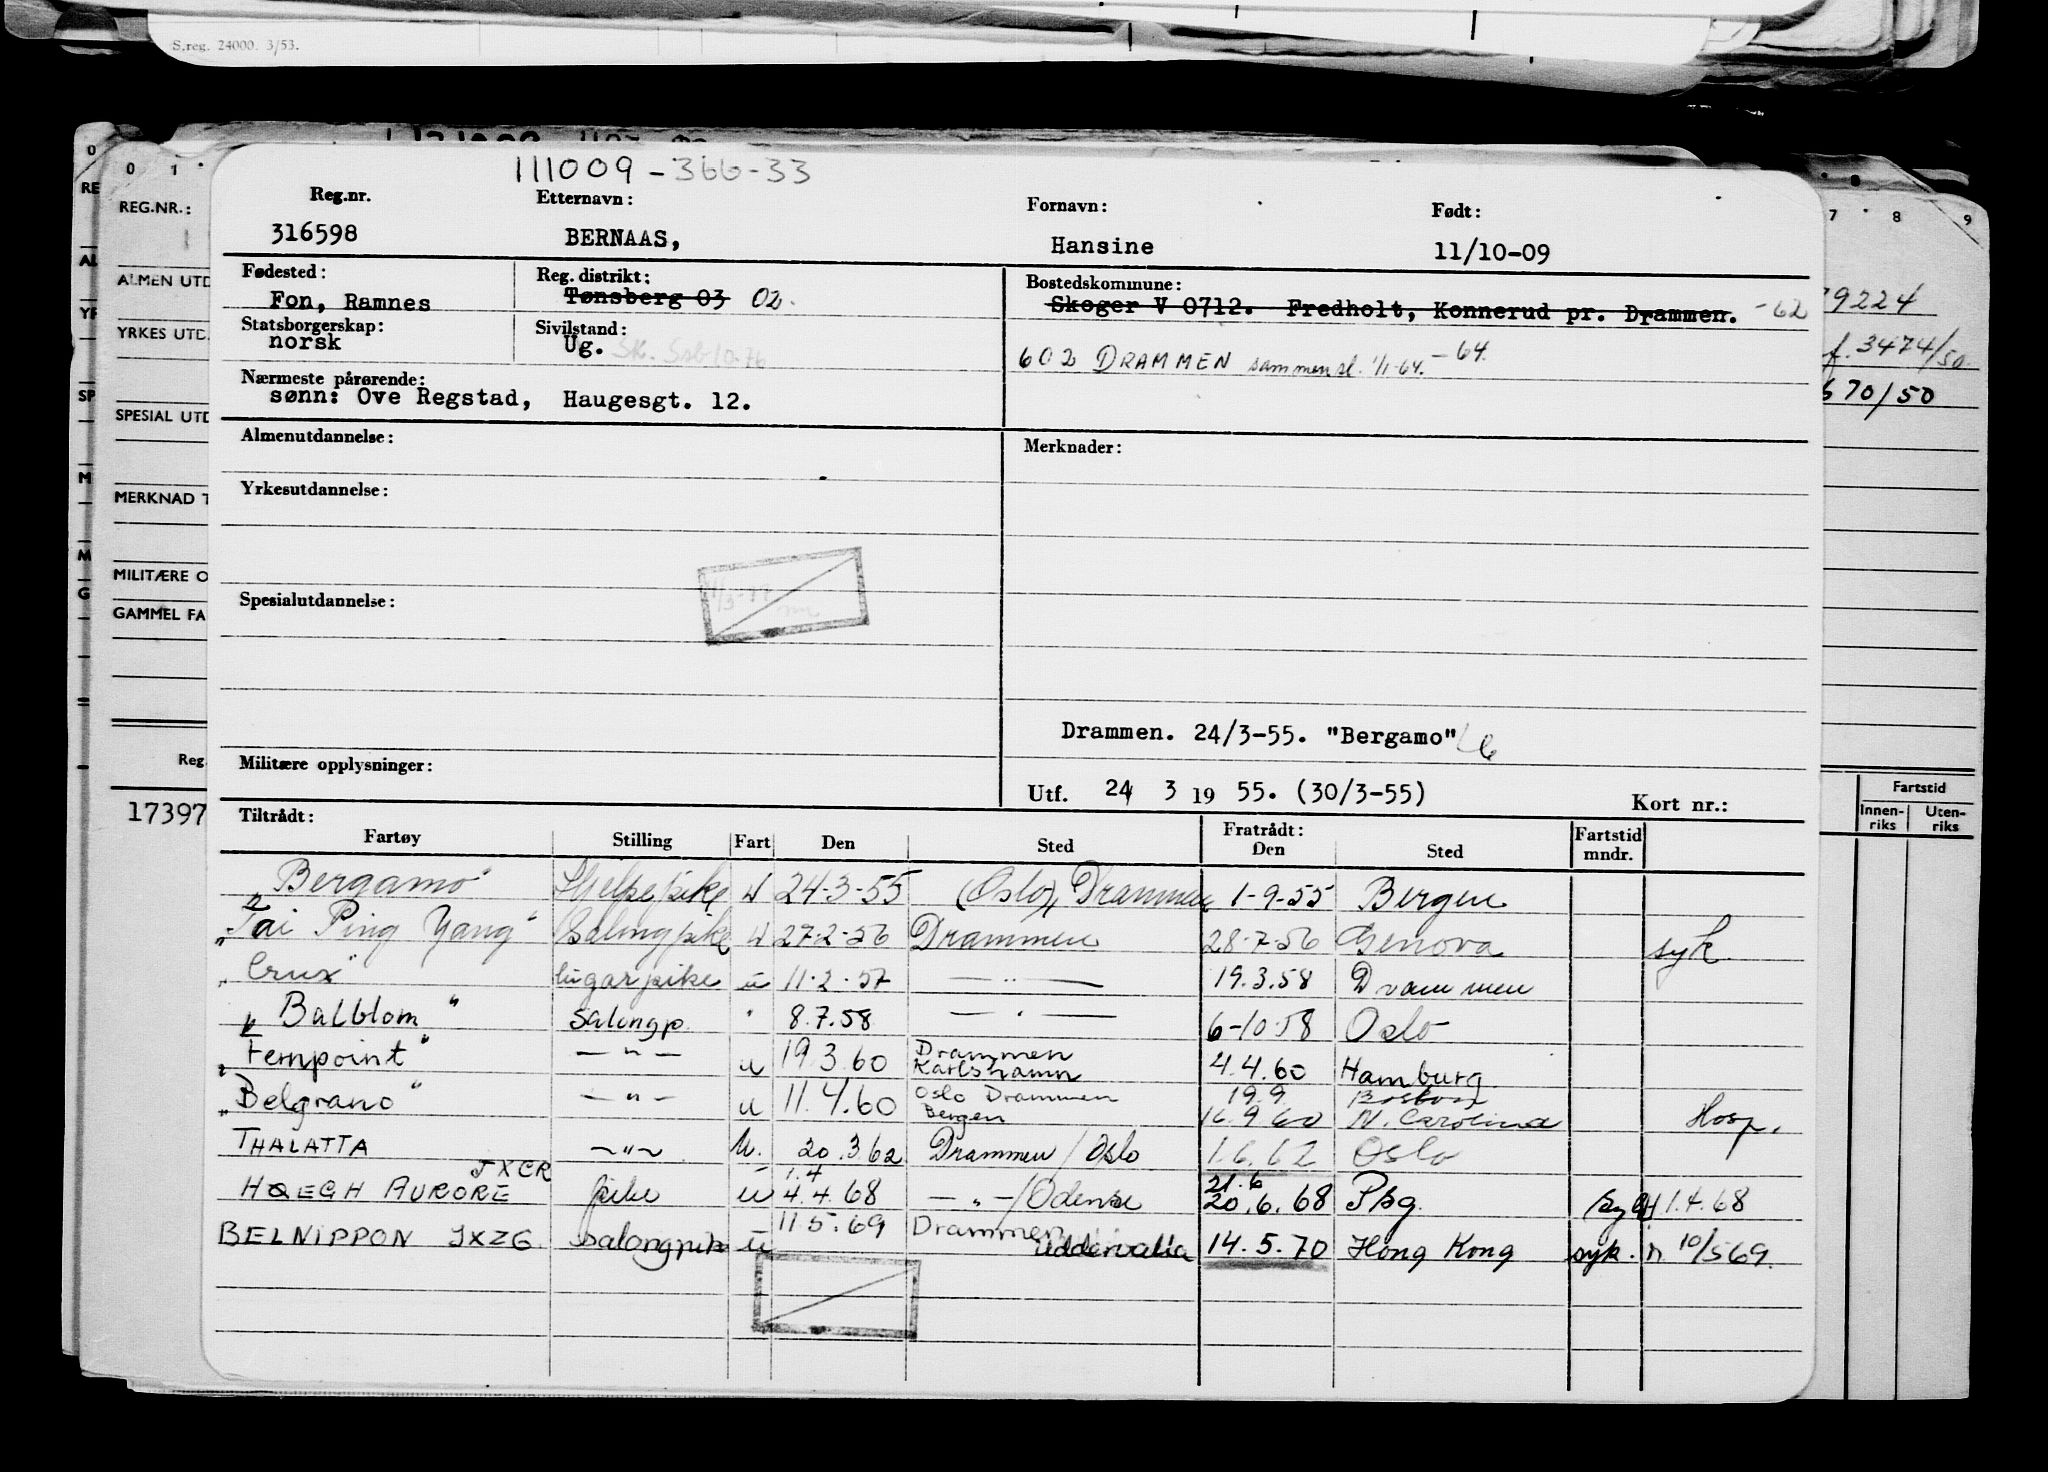 S.reg. 24000. 3/53.
111009 - 366-33
Reg.nr. Etternavn: Fornavn: Født:
316598 BERNAAS, Hansine 11/10-09
Fødested: Reg. distrikt: Bostedskommune:
Fon, Ramnes Tønsberg 03 02. Skoger V 0712. Fredholt, Konnerud pr. Drammen. -62
Statsborgerskap: Sivilstand:
norsk Ug.
602 DRAMMEN sammensl. 1/1-64. -64.
Nærmeste pårørende:
sønn: Ove Regstad, Haugesgt. 12.
Almenutdannelse: Merknader:
Yrkesutdannelse:
Spesialutdannelse:
Drammen. 24/3-55. "Bergamo"
Militære opplysninger:
Utf. 24 3 19 55. (30/3-55) Kort nr.:
Tiltrådt: Fratrådt: Fartstid
Fartøy Stilling Fart Den Sted Den Sted mndr.
"Bergamo" Hjelpepike u 24-3-55 (Oslo) Drammen 1-9-55 Bergen
"Tai Ping Yang" Salongpike u 27-2-56 Drammen 28-7-56 Genova syk
"Crux" lugarpike u 11-2-57 — " — 19.3.58 Drammen
"Balblom" Salongp. " 8.7.58 — " — 6-10-58 Oslo
"Fernpoint" — " — u 19.3.60 Drammen Karlshamn 4.4.60 Hamburg
"Belgrano" — " — u 11.4.60 Oslo Drammen Bergen 19.9 Boston
16.9.60 N. Carolina Hosp.
THALATTA — " — u. 20.3.62 Drammen / Oslo 1.6.62 Oslo
JXCR 1.4 21.6
HØEGH AURORE pike u 4.4.68 — " — / Odense 20.6.68 Psg. 1.4.68
BELNIPPON JXZG salongpike u 11.5.69 Drammen Uddevalla 14.5.70 Hong Kong syk. 10/5 69.
REG.NR.:
ALMEN UTD
YRKES UTD.
SPESIAL UTD
MERKNAD T
MILITÆRE O
GAMMEL FA
Reg.
17397
7 8 9
79224
f. 3474/50
670/50
Fartstid
Innen-riks Uten-riks